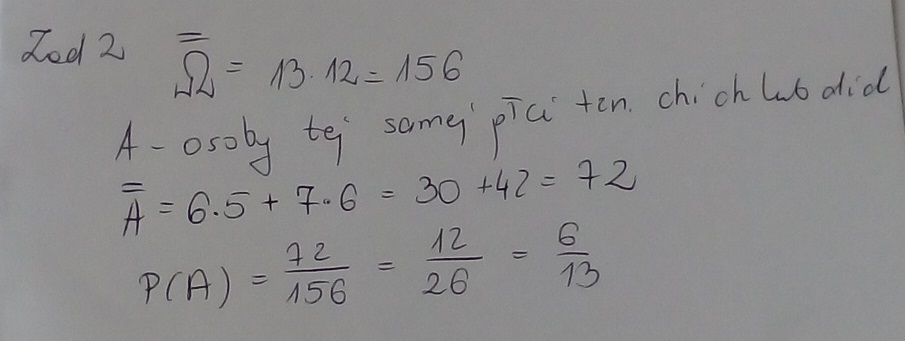 Zad 2 Ω̿ = 13·12 = 156
A - osoby tej samej płci tzn. ch i ch lub d i d
A̿ = 6·5 + 7·6 = 30 + 42 = 72
P(A) = 72/156 = 12/26 = 6/13